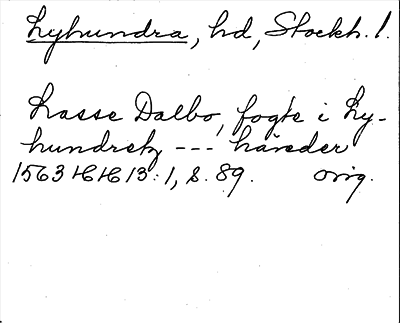 Lyhundra, hd, Stockh. l.
Lasse Dalbo, fogte i Ly-
hundretz --- häreder
1563 HH 13:1, s. 89. orig.